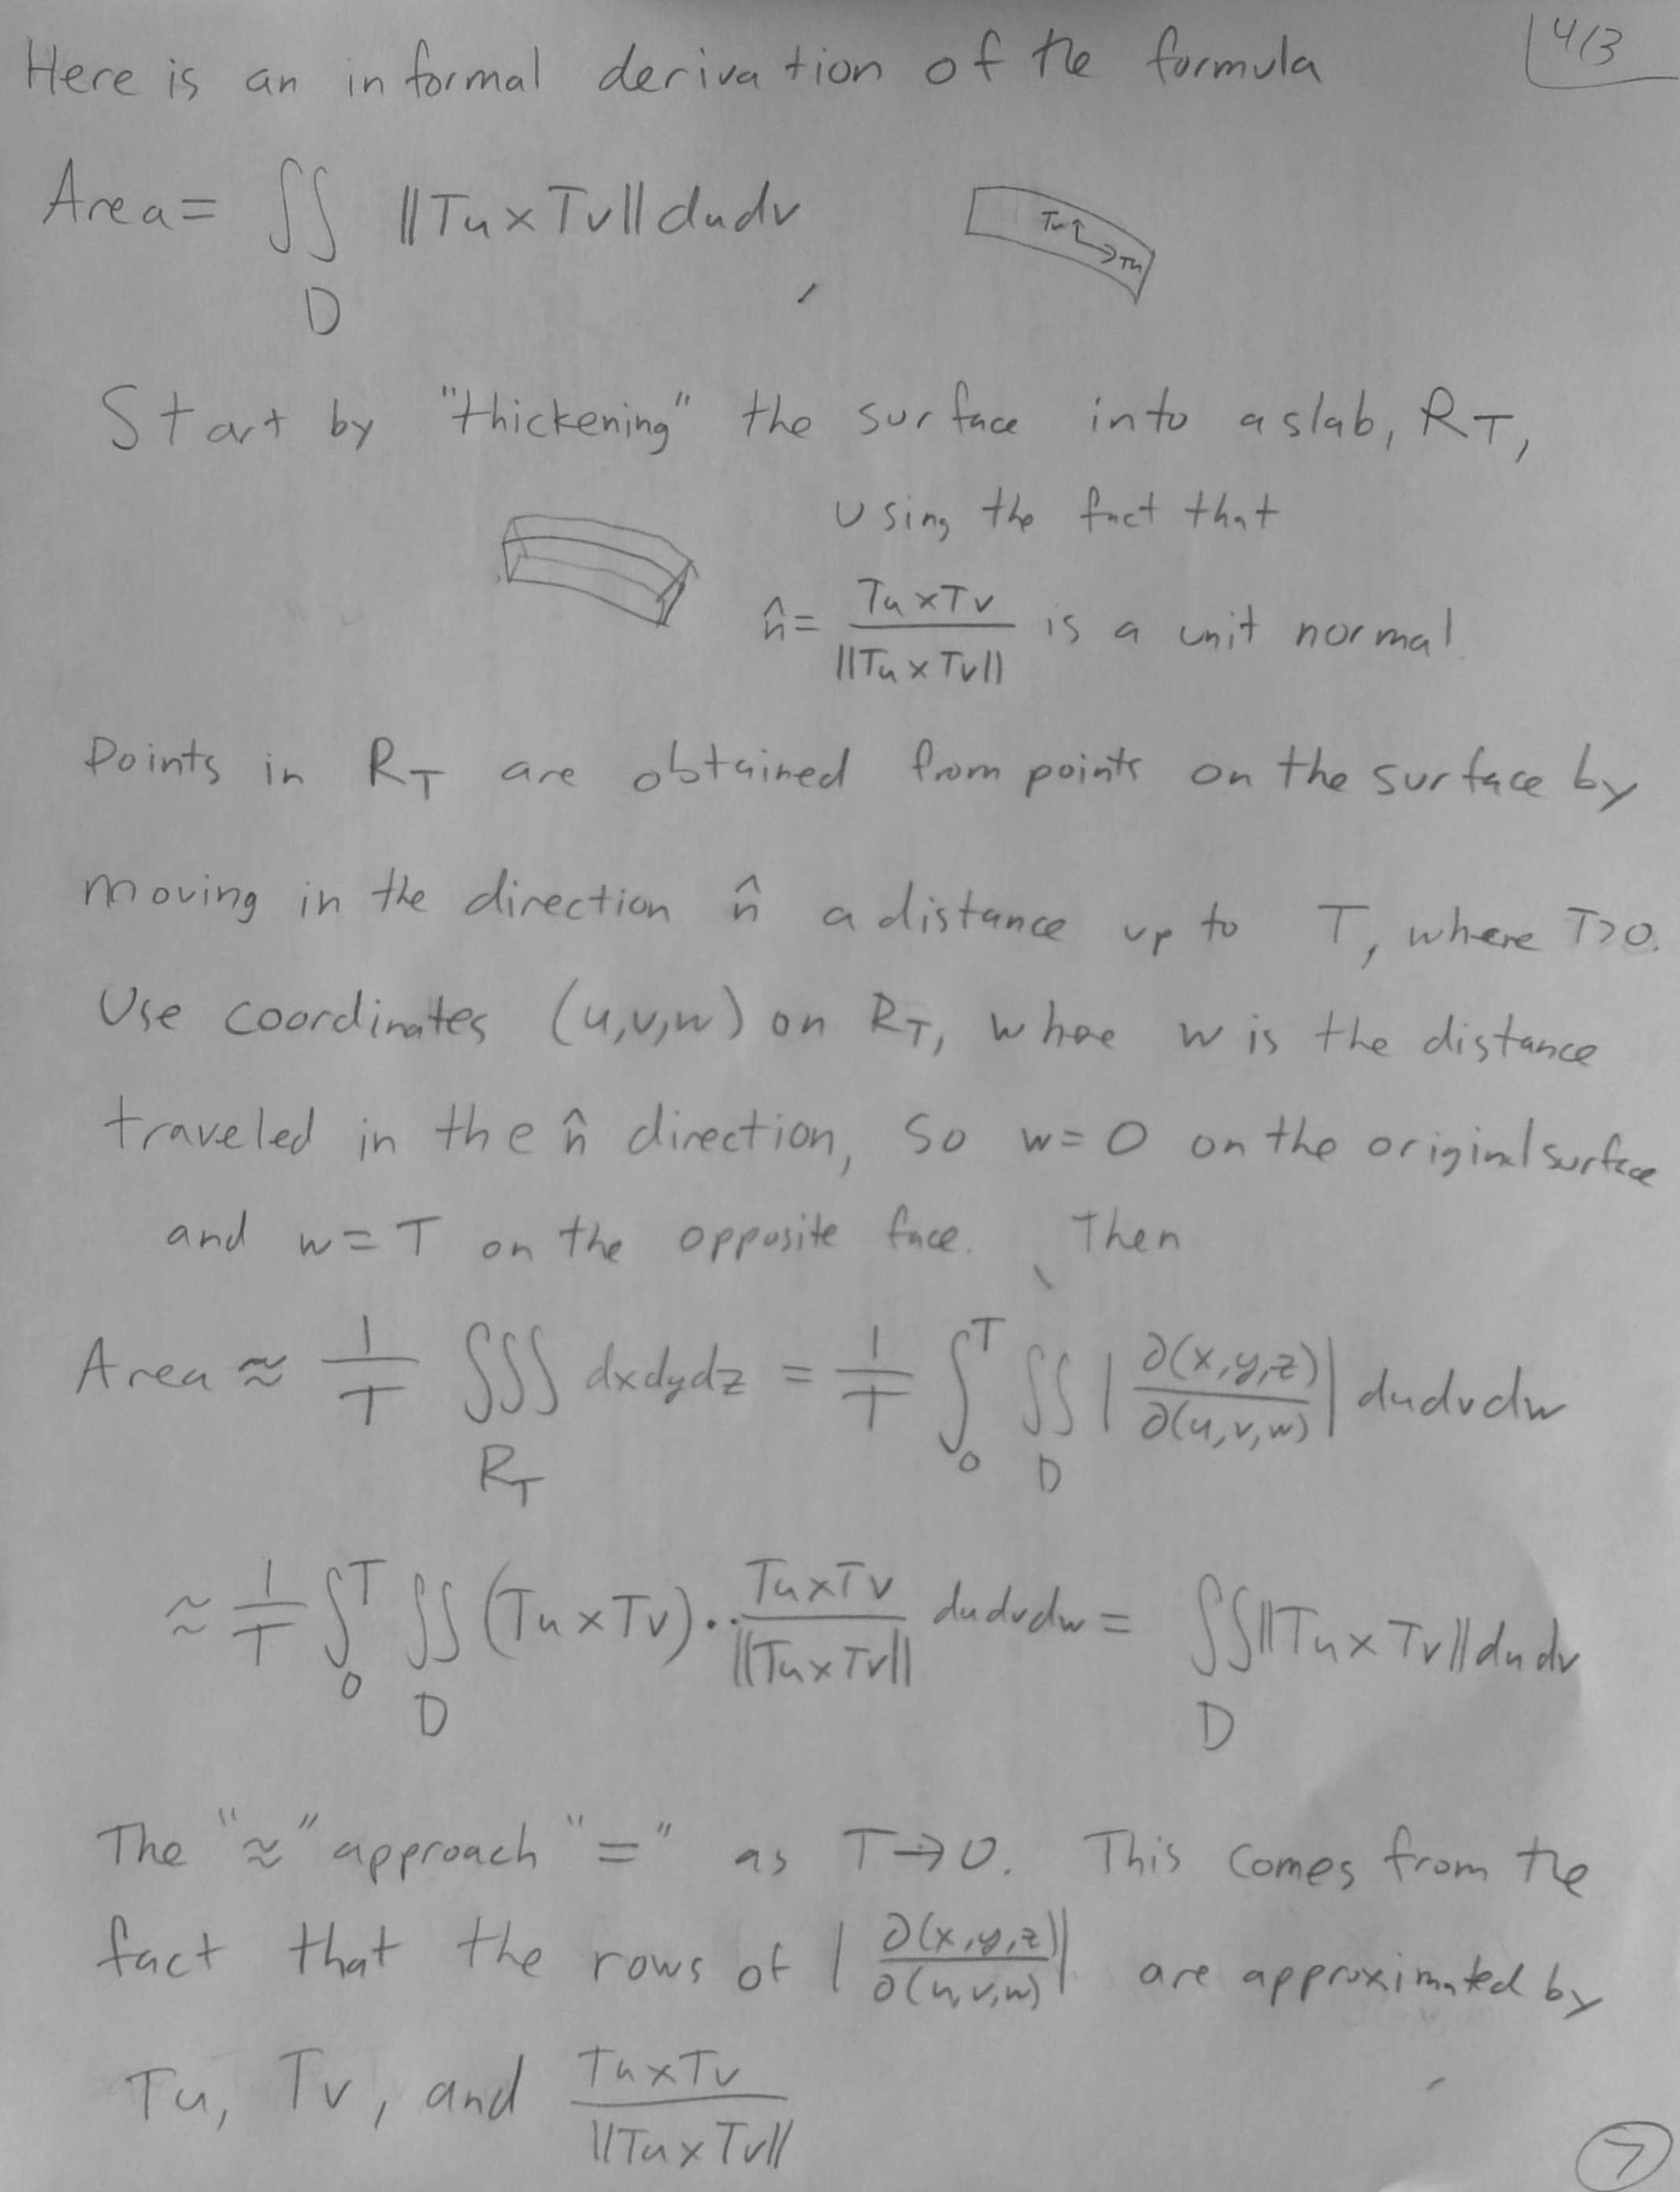 Here is an informal derivation of the formula
4/3
Area = ∬ ‖Tu × Tv‖ du dv
D
Tv Tu
Start by "thickening" the surface into a slab, R_T,
using the fact that
n̂ = (Tu × Tv) / ‖Tu × Tv‖ is a unit normal.
Points in R_T are obtained from points on the surface by
moving in the direction n̂ a distance up to T, where T>0.
Use coordinates (u,v,w) on R_T, where w is the distance
traveled in the n̂ direction, so w=0 on the original surface
and w=T on the opposite face. Then
Area ≈ 1/T ∭_{R_T} dxdydz = 1/T ∫_0^T ∬_D |∂(x,y,z)/∂(u,v,w)| dudvdw
≈ 1/T ∫_0^T ∬_D (Tu × Tv) · (Tu × Tv)/‖Tu × Tv‖ dudvdw = ∬_D ‖Tu × Tv‖ du dv
The "≈" approach "=" as T→0. This comes from the
fact that the rows of |∂(x,y,z)/∂(u,v,w)| are approximated by
Tu, Tv, and (Tu × Tv)/‖Tu × Tv‖
7